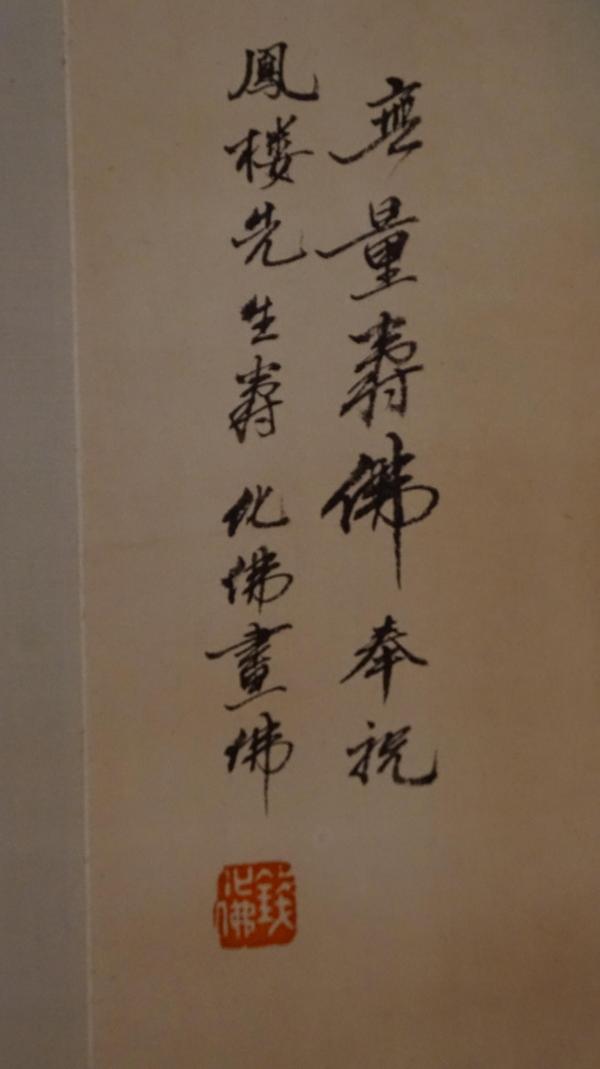 無量壽佛奉祝
鳳樓先生壽 化佛畫佛
錢化佛